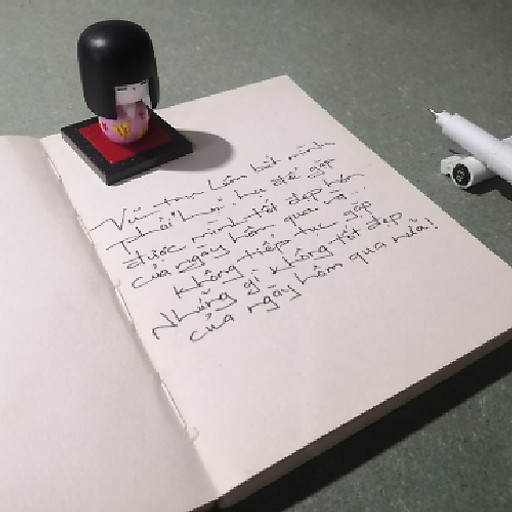 Vũ trụ luôn bắt mình
phải học hư để gặp
được mình tốt đẹp hơn
của ngày hôm qua và...
không tiếp tục gặp
Những gì không tốt đẹp
của ngày hôm qua nữa!